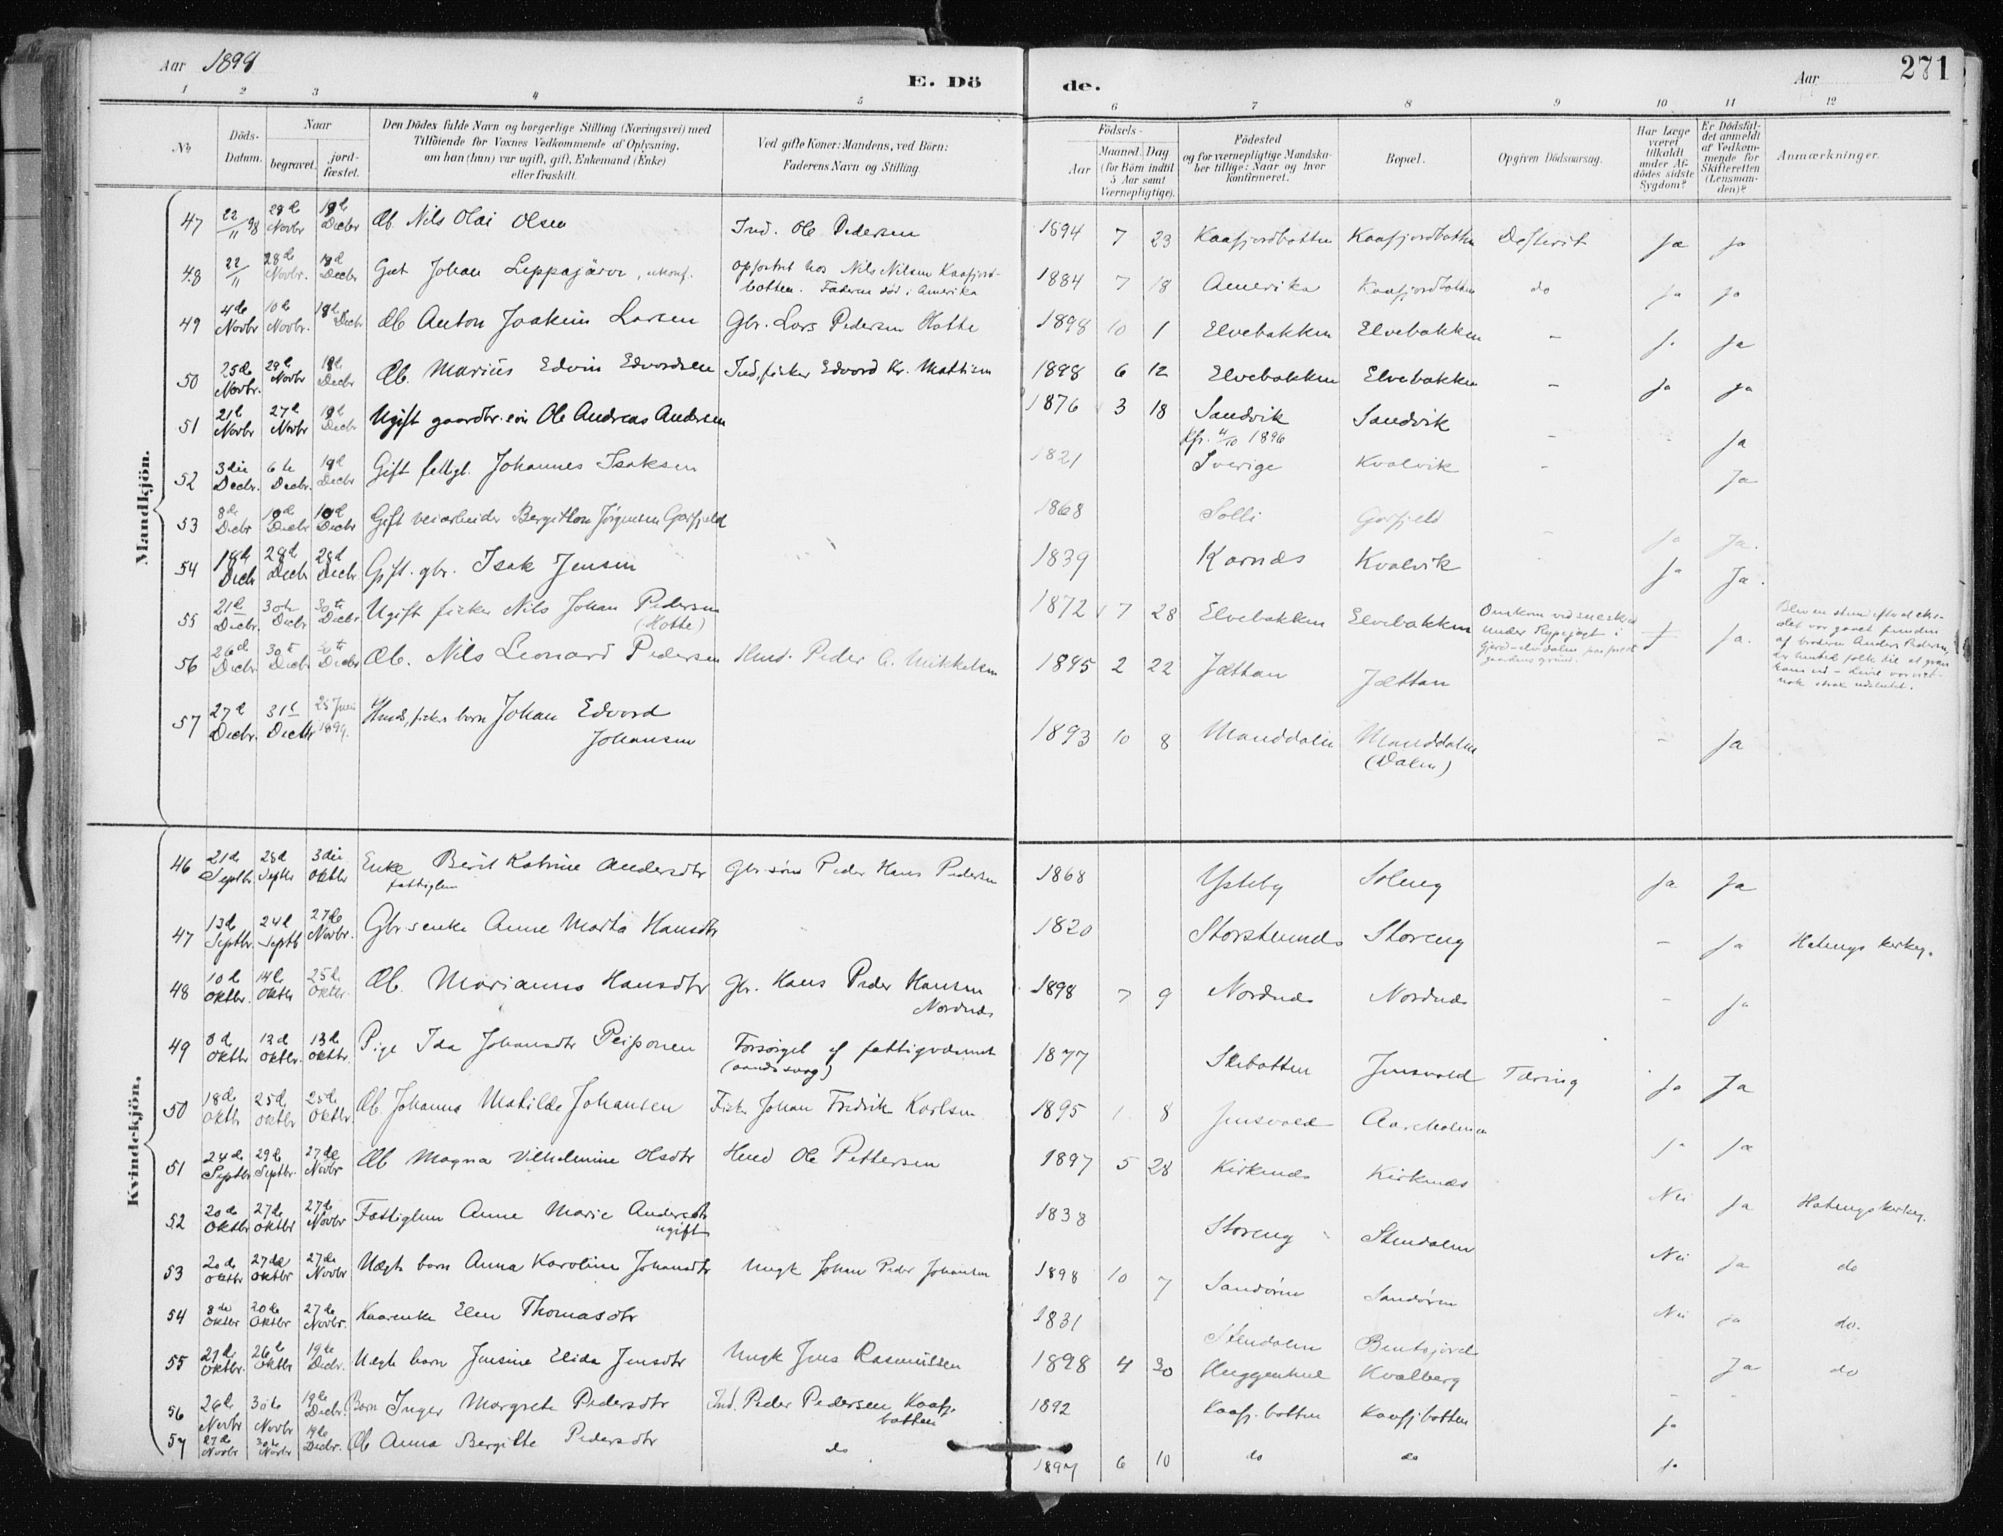 Aar 1898
E. Dö
de.
Aar
271
1 2 3 4 5 6 7 8 9 10 11 12
No
Döds-Datum.
Naar
begravet.
jord-fæstet.
Den Dödes fulde Navn og borgerlige Stilling (Næringsvei) med
Tilföiende for Voxnes Vedkommende af Oplysning,
om han (hun) var ugift, gift, Enkemand (Enke)
eller fraskilt.
Ved gifte Koner: Mandens, ved Börn:
Faderens Navn og Stilling.
Födsels-
Aar
Maaned. Dag
(for Börn indtil
5 Aar samt
Værnepligtige).
Födested
og for værnepligtige Mandska-
ber tillige: Naar og hvor
konfirmeret.
Bopæl.
Opgiven Dödsaarsag.
Har Læge
været
tilkaldt
under Af-
dödes sidste
Sygdom?
Er Dödsfal-
det anmeldt
af Vedkom-
mende for
Skifteretten
(Lensman-
den)?
Anmærkninger.
Mandkjön.
47 22/11 98 28d Novbr 19d Decbr Æb. Nils Olai Olsen Ind. Ole Pedersen 1894 7 23 Kaafjordbotten Kaafjordbotten Difterit ja ja
48 22/11 28d Novbr. 19d Decbr Gut Johan Leppajärvi, ukonf. opfostret hos Nils Nilsen Kaafjord-
botten. Faderen död i Amerika 1884 7 18 Amerika Kaafjordbotten do ja ja
49 4de Novbr 10de Novbr. 18de Decbr Æb Anton Joakim Larsen Gbr. Lars Pedersen Hotte 1898 10 1 Elvebakken Elvebakken - ja
50 25de Novbr. 29de Novbr 19d Decbr Æb. Marius Edvin Edvardsen Ind, fisker Edvard Kr. Mathisen 1898 6 12 Elvebakken Elvebakken - ja ja
51 21de Novbr 27de Novbr 19d Decbr Ugift gaardbr. sön Ole Andreas Andersen 1876 3 18 Sandvik
Kfr. 4/10 1896 Sandvik - ja
52 3die Decbr. 6te Decbr. 19d Decbr Gift fattigl. Johannes Isaksen 1821 Sverige Kvalvik - Ja
53 8de Decbr 19d Decbr 19d Decbr Gift veiarbeider Bergithon Jørgensen Garfjeld 1868 Solli Garfjeld - ja Ja.
54 18d Decbr 28d Decbr 28d Decbr. Gift. gbr. Isak Jensen 1839 Karnæs Kvalvik ja Ja.
55 21de Decbr. 30te Decbr 30te Decbr. Ugift fisker Nils Johan Pedersen
(Hotte) 1872 7 28 Elvebakken Elvebakken Omkom ved sneskred
under Rypejagt i ja.
56 26d Decbr 30te Decbr 30te Decbr Æb. Nils Leonard Pedersen Husd. Peder A. Mikkelsen 1895 2 22 Jættan Jættan
57 27d Decbr. 31te Decbr 25 Juni 1899. Husd, fiskers barn Johan Edvard
Johansen 1893 10 8 Manddalen Manddalen
(Dalen) - ja
Kvindekjön.
46 21de Septbr 25d Septbr 3die Oktbr Enke Berit Katrine Andersdtr
fattiglem Gbr. søns Peder Hans Pedersen 1868 Ysteby Soleng ja ja
47 13de Septbr. 24d Septb 27de Novbr. Gbr.s enke Anne Marta Hansdtr 1820 Storstenneds Storeng - ja Hatengs kirkeg.
48 10de Oktbr. 14de Oktbr 25de Oktbr. Æb. Marianne Hansdtr Gbr. Hans Peder Hansen
Nordnæs 1898 7 9 Nordnæs Nordnæs - ja
49 8d Oktbr 13d Oktbr. 13d Oktbr. Pige Ida Johansdtr Peiponen Forsörget af fattigvæsenet
(aandssvag) 1877 Skibotten Jensvold Tæring ja Ja
50 18de Oktbr 25d Oktbr 25de Oktbr. Æb. Johanna Matilde Johansen Fisker Johan Fredrik Karlsen 1895 1 8 Jensvold Aarsholmen ja ja
51 24de Septbr 29de Septbr. 27de Novbr Æb Magna Vilhelmine Olsdtr Husd Ole Pettersen 1897 5 28 Kirknæs Kirknæs Nei Ja Hatengs kirkeg.
52 20d Oktbr 27de Oktbr 27de Novbr Fattiglem Anne Marie Andersdtr
ugift 1838 Storeng Stendalen Nei ja do
53 20de Oktbr 27de Oktbr 27de Novbr Uægte barn Anna Karoline Johansdtr Ungk Johan Peder Johansen 1898 10 7 Sandøren Sandøren Nei ja do.
54 8de Oktbr 20de Oktbr 27de Novbr. Kaarenke Elen Thomasdtr 1831 Stendalen Bentsjord
55 21de Oktbr. 26de Oktbr 19de Decbr. Uægte barn Jensine Elida Jensdtr Ungk Jens Rasmussen 1898 4 30 Huggenhul Kvalberg - Ja do
56 26de Novbr 30te Novbr 19de Decbr. Barn Inger Margrete Pedersdtr Ind. Peder Pedersen Kaafj.
botten 1892 Kaafj. botten Kaafj botten ja
57 27de Novbr 30te Novbr 19de Decbr. Æb Anna Bergitte Pedersdtr do 1897 6 10 do do ja